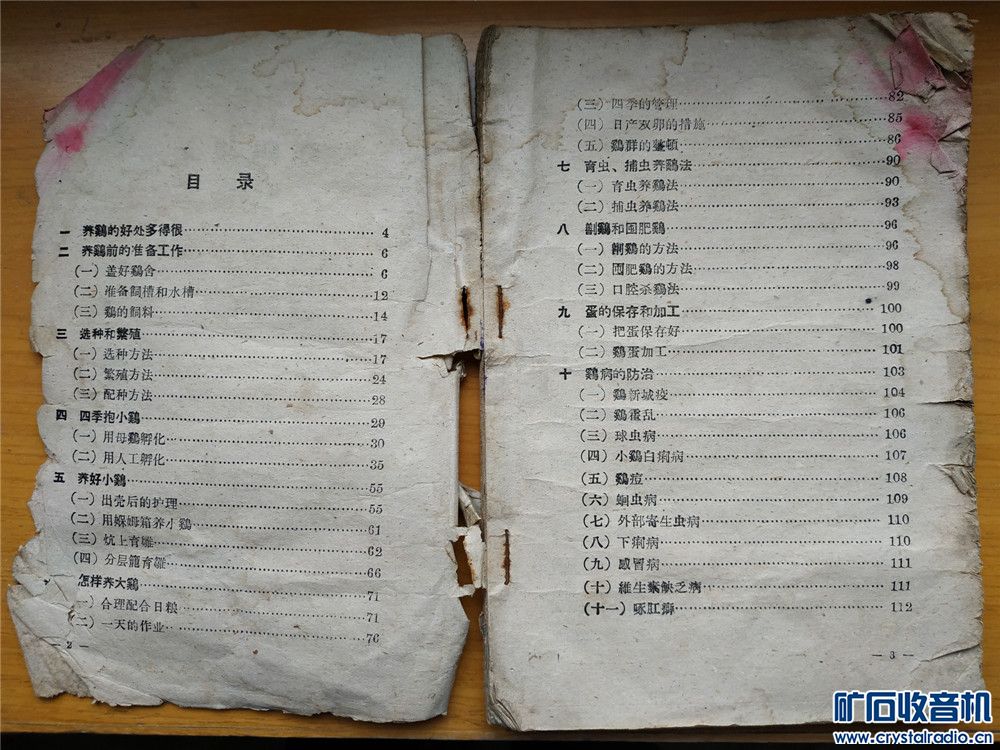 目 录
一 养鷄的好处多得很 4
二 养鷄前的准备工作 6
(一) 盖好鷄舍 6
(二) 准备飼槽和水槽 12
(三) 鷄的飼料 14
三 选种和繁殖 17
(一) 选种方法 17
(二) 繁殖方法 24
(三) 配种方法 28
四 四季抱小鷄 29
(一) 用母鷄孵化 30
(二) 用人工孵化 35
五 养好小鷄 55
(一) 出壳后的护理 55
(二) 用躱姆箱养小鷄 61
(三) 炕上育雛 62
(四) 分层籠育雛 66
怎样养大鷄 71
一) 合理配合日粮 71
(二) 一天的作业 76
— 2 —
(三) 四季的管理 82
(四) 日产双卵的措施 85
(五) 鷄群的整頓 86
七 育虫、捕虫养鷄法 90
(一) 育虫养鷄法 90
(二) 捕虫养鷄法 93
八 劁鷄和囤肥鷄 96
(一) 劁鷄的方法 96
(二) 囤肥鷄的方法 98
(三) 口腔杀鷄法 99
九 蛋的保存和加工 100
(一) 把蛋保存好 100
(二) 鷄蛋加工 101
十 鷄病的防治 103
(一) 鷄新城疫 104
(二) 鷄霍乱 106
(三) 球虫病 106
(四) 小鷄白痢病 107
(五) 鷄痘 108
(六) 蛔虫病 109
(七) 外部寄生虫病 110
(八) 下痢病 110
(九) 感冒病 111
(十) 維生素缺乏病 111
(十一) 啄肛癖 112
— 3 —
矿石收音机
www.crystalradio.cn